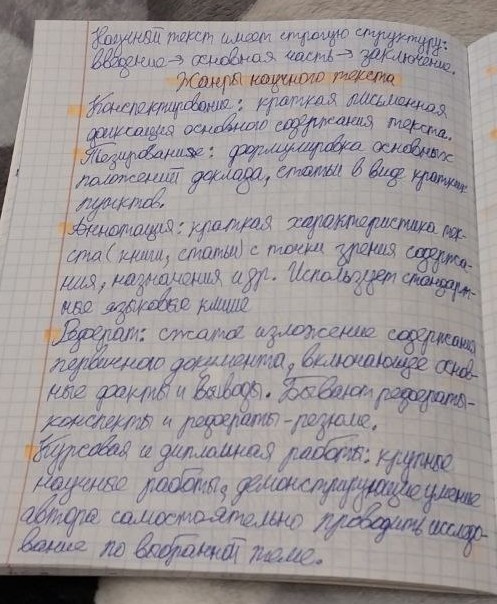 Научный текст имеет строгую структуру:
введение → основная часть → заключение.
Жанры научного текста
Конспектирование: краткая письменная
фиксация основного содержания текста.
Тезирование: формулировка основных
положений доклада, статьи в виде кратких
пунктов.
Аннотация: краткая характеристика тек-
ста (книги, статьи) с точки зрения содержа-
ния, назначения и др. Использует стандарт-
ные языковые клише
Реферат: сжатое изложение содержания
первичного документа, включающее основ-
ные факты и выводы. Бывают рефераты-
конспекты и рефераты-резюме.
Курсовая и дипломная работы: крупные
научные работы, демонстрирующие умение
автора самостоятельно проводить исследо-
вание по выбранной теме.